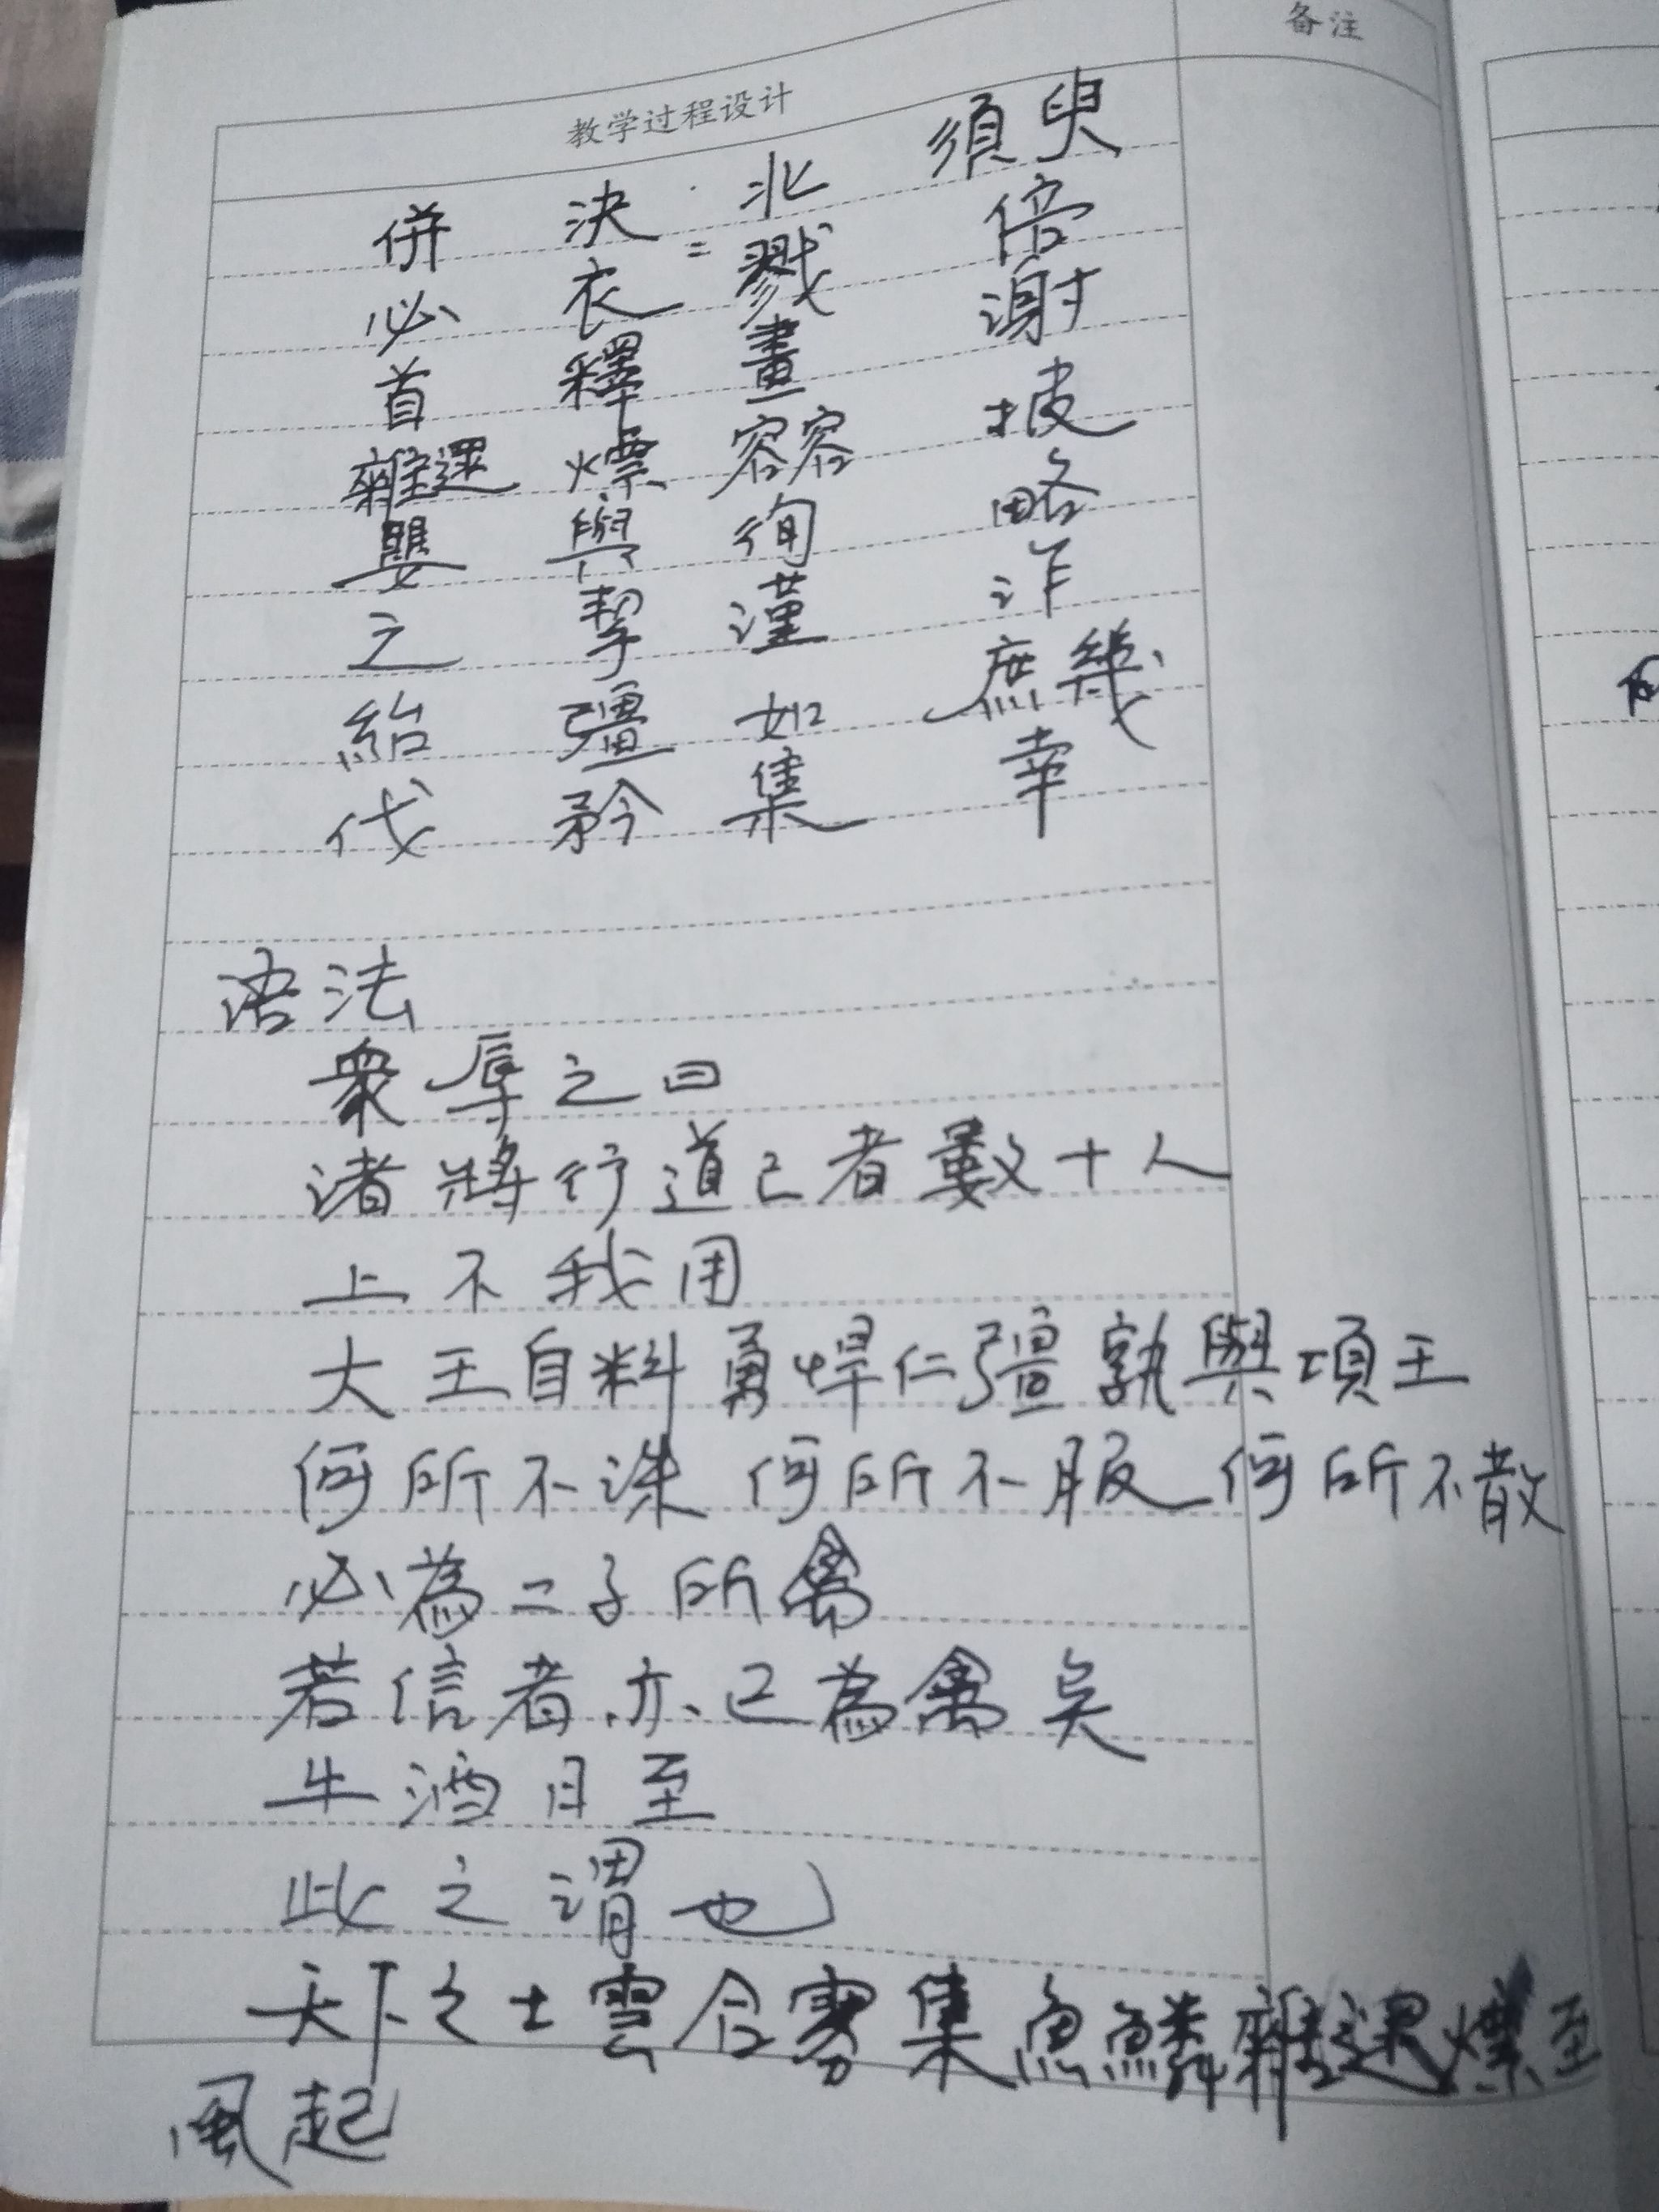 备注
教学过程设计
併 決 北 須臾
必 衣 戮 倍
首 釋 畫 謝
雜遝 熛 容容 披
嬰 與 徇 略
之 挈 謹 詐
紿 彊 如 庶幾
伐 矜 集 幸
语法
衆辱之曰
诸將行道亡者數十人
上不我用
大王自料勇悍仁彊孰與項王
何所不誅 何所不服 何所不散
必為二子所禽
若信者亦已為禽矣
牛酒日至
此之謂也
天下之士雲合霧集魚鱗雜遝熛至
風起